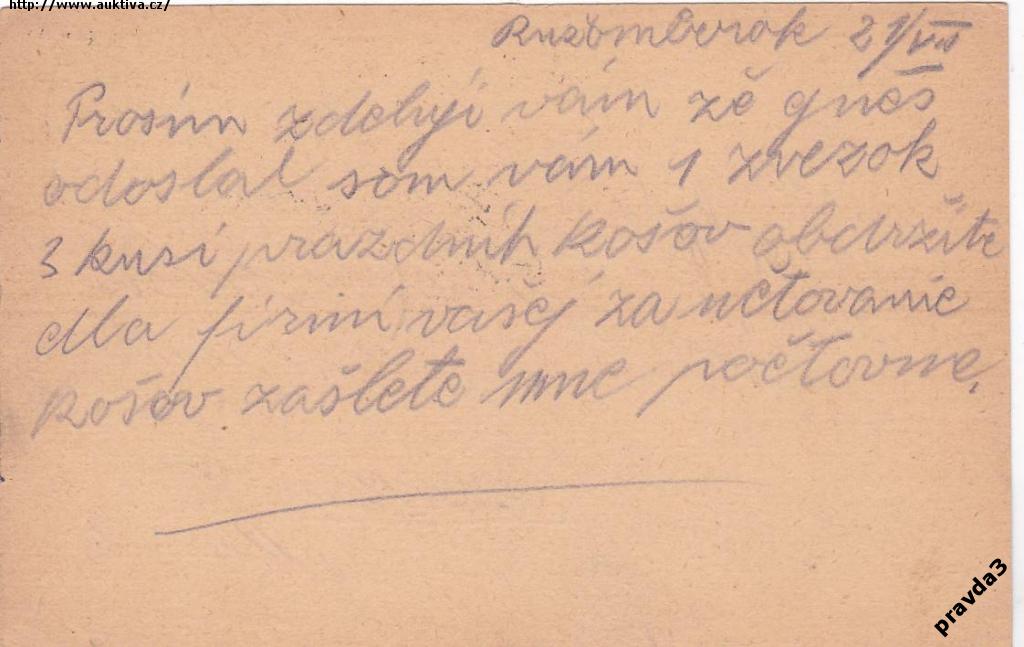 http://www.auktiva.cz/
Ružomberok 21/VII
Prosim zdeluji vám zě gnes
odoslal som vám 1 zvezok
3 kusi prázdnih košov obdržite
dla firmi vašėj za učtovanie
košov zašlete mne počtovne.
pravda3